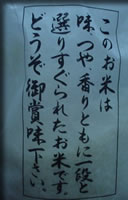 このお米は
味、つや、香りともに一段と
選りすぐられたお米です。
どうぞ御賞味下さい。